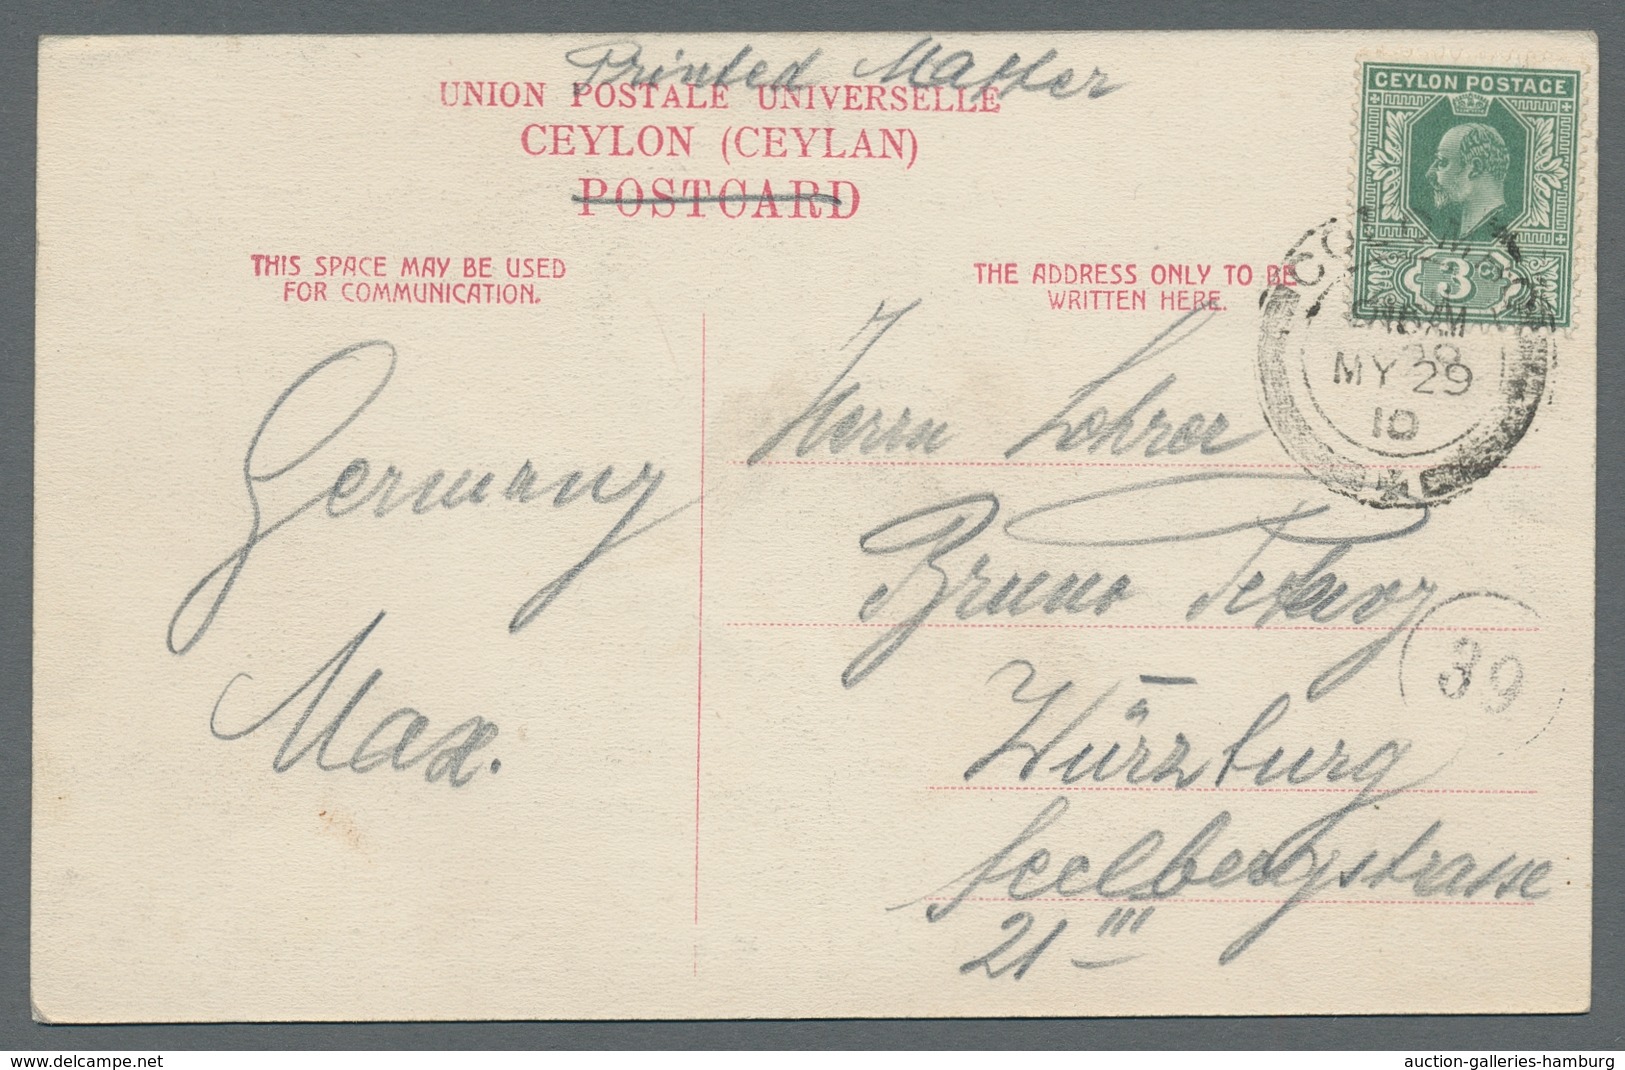 Printed Matter
UNION POSTALE UNIVERSELLE
CEYLON (CEYLAN)
POSTCARD
CEYLON POSTAGE
3 Cs
THIS SPACE MAY BE USED
FOR COMMUNICATION.
THE ADDRESS ONLY TO BE
WRITTEN HERE.
MY 29
10
Germany
Max.
Herrn
Bruno
Würzburg
Seelbergstrasse
21 III
39
delcampe.net
auction-galleries-hamburg